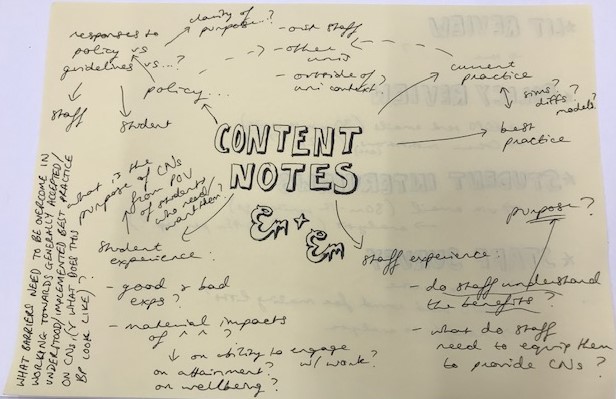 responses to
policy vs
guidelines vs...?
staff
student
clarity of
purpose..?
policy...
- our staff
- other
unis
- outside of
uni context?
current
practice
sims?
diffs?
models?
best
practice
CONTENT
NOTES
Em + Em
what is the
purpose of CNs
from POV
of students
who need/
want them?
student
experience:
- good & bad
exps?
- material impacts
of ^ ^ ?
on ability to engage
w/ work?
on attainment?
on wellbeing?
staff experience
- do staff understand
the benefits?
- what do staff
need to equip them
to provide CNs?
purpose?
WHAT BARRIERS NEED TO BE OVERCOME IN
WORKING TOWARDS GENERALLY ACCEPTED/
UNDERSTOOD/IMPLEMENTED BEST PRACTICE
ON CNs (& WHAT DOES THIS
BP LOOK LIKE)?
LIT REVIEW
REVIEW
STUDENT